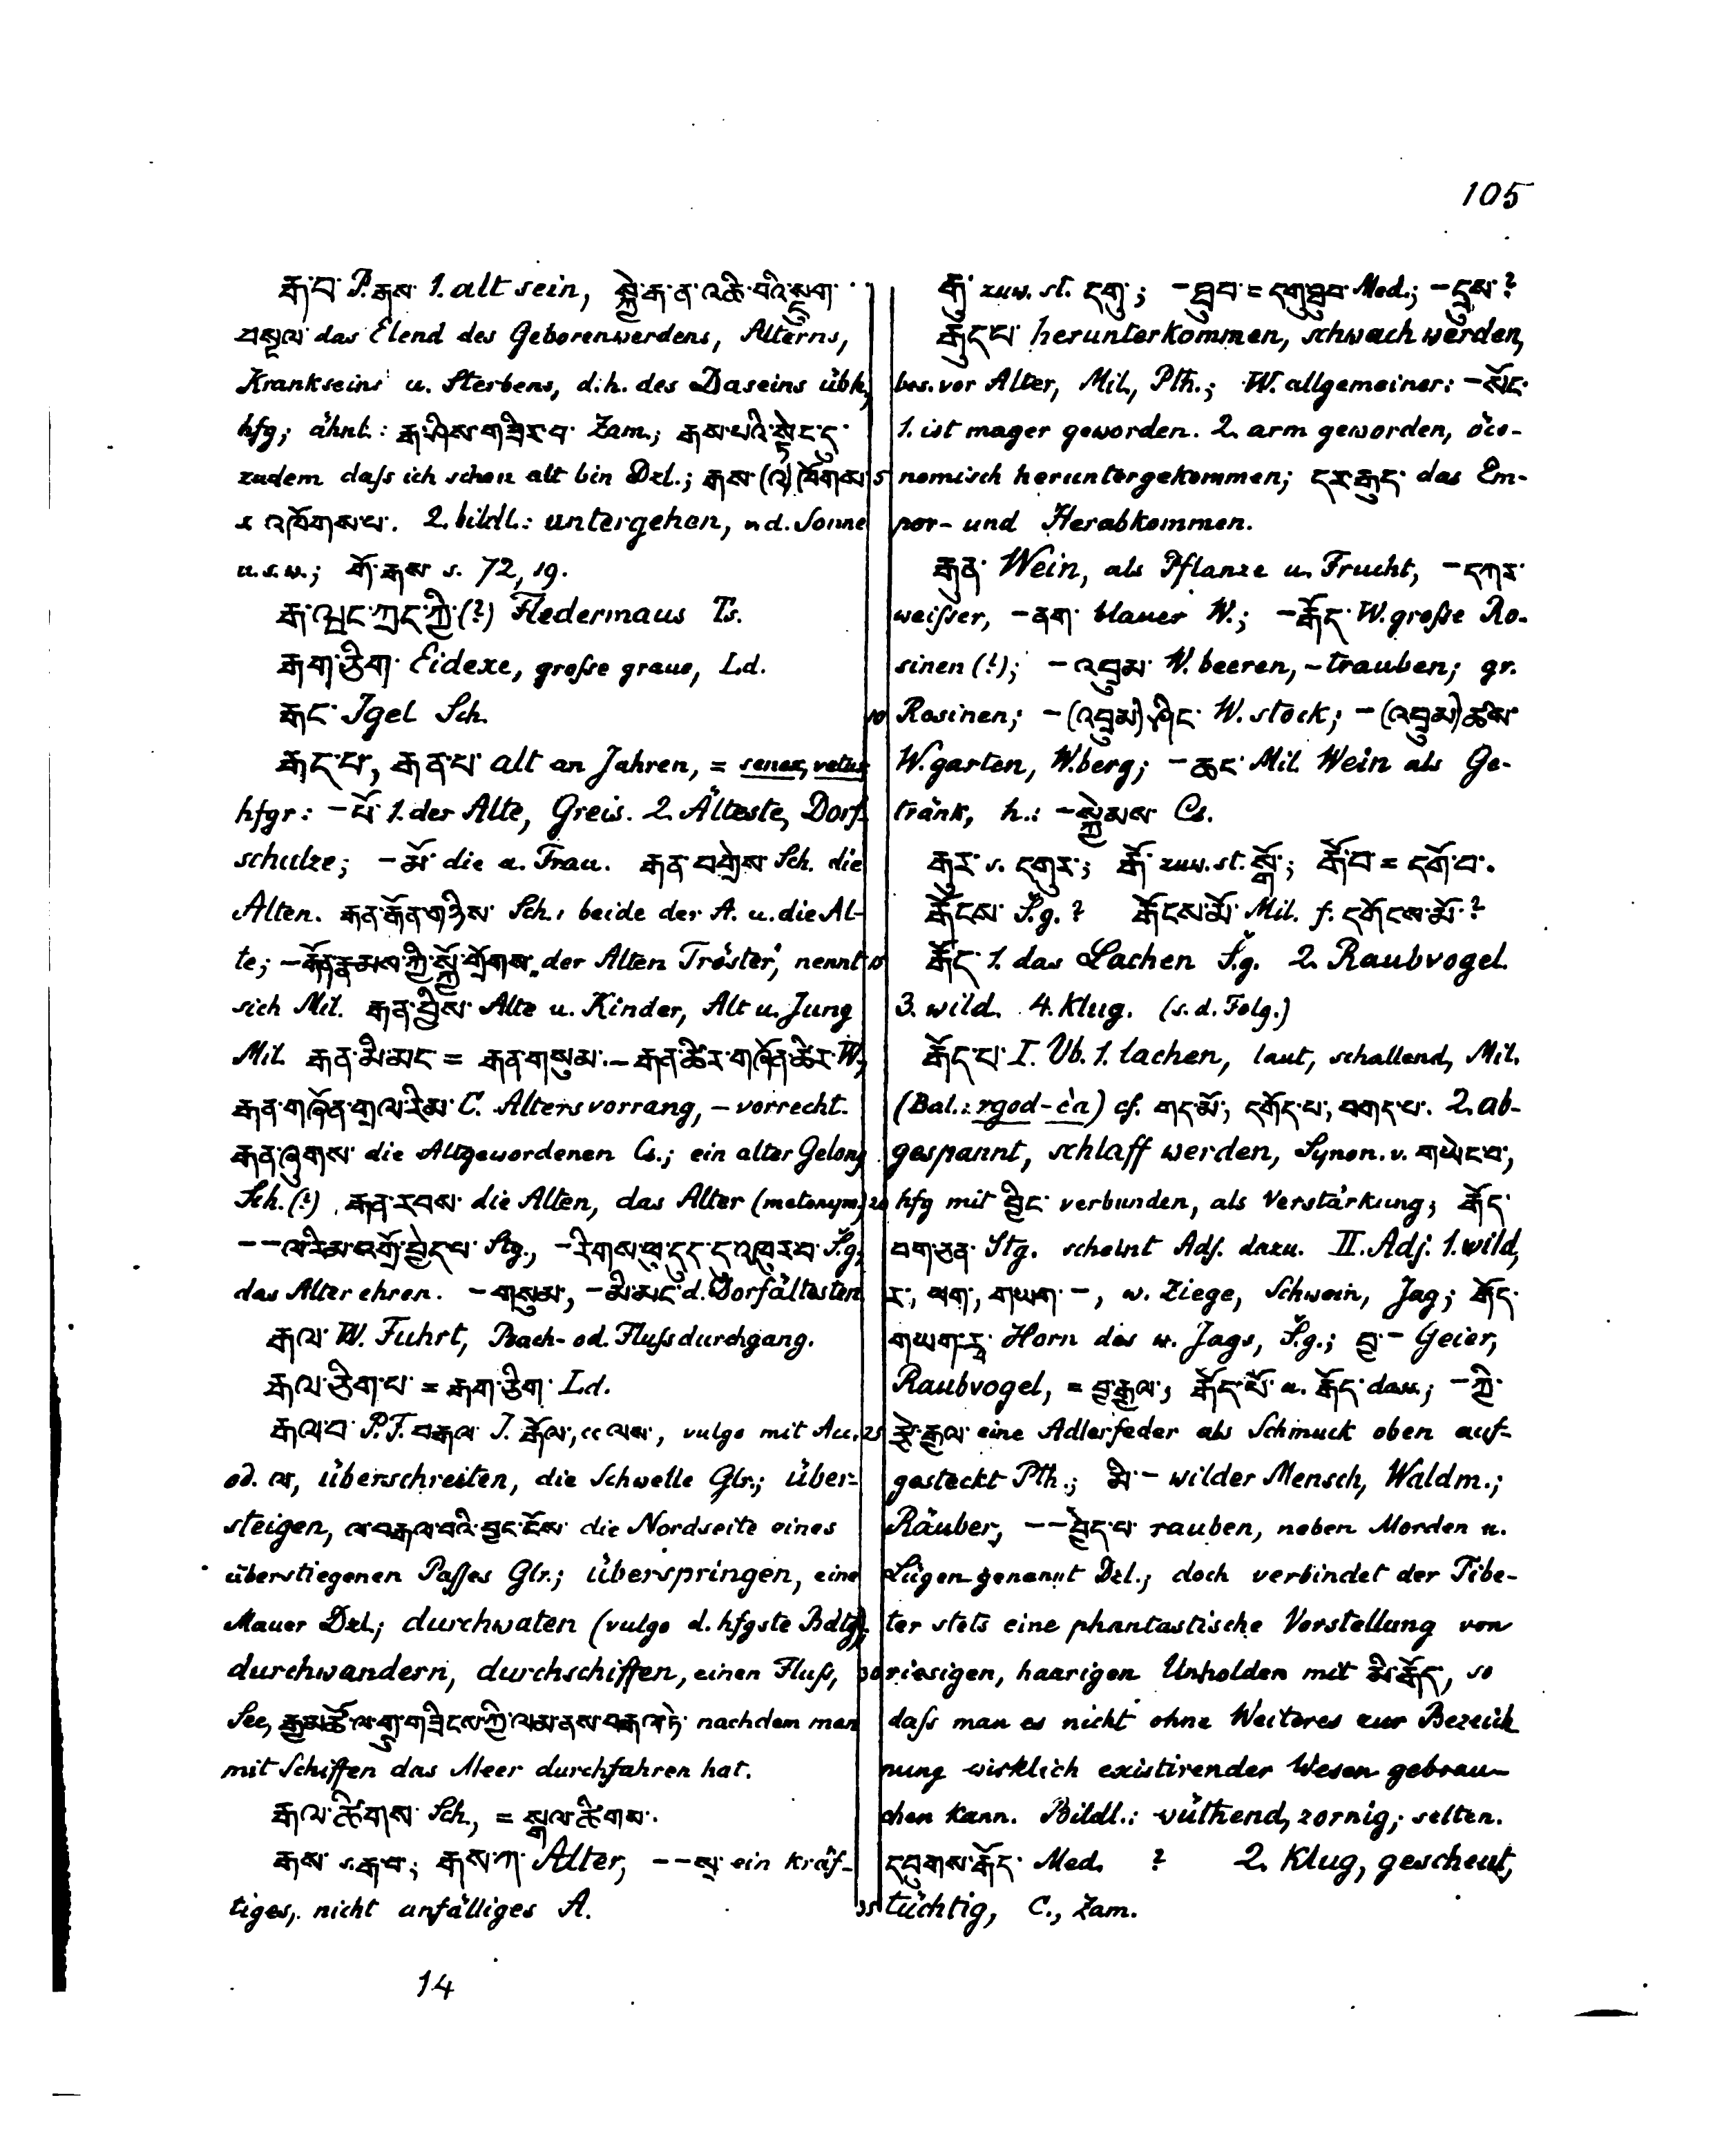 105
རྒ་བ་ P. རྒས་ 1. alt sein, སྐྱེ་རྒ་ན་འཆི་བའི་སྡུག་
བསྔལ་ das Elend des Geborenwerdens, Alterns,
Krankseins u. Sterbens, d.h. des Daseins übh.,
hfg; ähnl.: རྒ་ཤིས་གཟིར་བ་ Zam.; རྒས་པའི་སྟེང་དུ་
zudem daſs ich schon alt bin Dzl.; རྒས་(འ)ཁོགས་ 5
r འཁོགས་པ་. 2. bildl.: untergehen, v. d. Sonne
u.s.w.; གོ་རྒས་ s. 72, 19.
རྒ་ལྤང་ཀྲད་ཀྱི་(?) Fledermaus Ts.
རྒག་ཅིག་ Eidexe, groſse graue, Ld.
རྒང་ Igel Sch. 10
རྒད་པ་, རྒན་པ་ alt an Jahren, = senex, vetus
hfgr: –པོ་ 1. der Alte, Greis. 2. Älteste, Dorf-
schulze; –མོ་ die a. Frau. རྒན་བགྲེས་ Sch. die
Alten. རྒན་རྒོན་གཉིས་ Sch.: beide der A. u. die Al-
te; –རྒོན་རྣམས་ཀྱི་སྐྱོ་གྲོགས་ „der Alten Tröster", nennt 15
sich Mil. རྒན་བྱིས་ Alte u. Kinder, Alt u. Jung
Mil. རྒན་མི་མང་ = རྒན་གསུམ་. – རྒན་ཚེར་གཞོན་ཚེར་ W.,
རྒན་གཞོན་གྲལ་རིམ་ C. Altersvorrang, –vorrecht.
རྒན་ཞུགས་ die Altgewordenen Cs.; ein alter Gelong
Sch. (?) རྒན་རབས་ die Alten, das Alter (metonym.) 20
– –ལ་རིམ་འགྲོ་བྱེད་པ་ Stg., –རིགས་ཕུ་དུད་དུ་འཁུར་བ་ S̆.g.,
das Alter ehren. –གསུམ་, –མི་མང་ d. Dorfältesten
རྒལ་ W. Fuhrt, Bach- od. Fluſsdurchgang.
རྒལ་ཅིག་པ་ = རྒག་ཅིག་ Ld.
རྒལ་བ་ P. F. བརྒལ་ J. རྒོལ་, cc ལས་, vulgo mit Acc. 25
od. ལ་, überschreiten, die Schwelle Glr.; über-
steigen, ལ་བརྒལ་བའི་བྱང་ངོས་ die Nordseite eines
überstiegenen Paſſes Glr.; überspringen, eine
Mauer Dzl.; durchwaten (vulgo d. hfgste Bdtg),
durchwandern, durchschiffen, einen Fluſs, 30
See, རྒྱ་མཚོ་ལ་གྲུ་གཟིངས་ཀྱི་ལམ་ནས་བརྒལ་ཏེ་ nachdem man
mit Schiffen das Meer durchfahren hat.
རྒལ་ཚིགས་ Sch., = སྒལ་ཚིགས་.
རྒས་ s. རྒ་བ་; རྒས་ཀ་ Alter, – –སྲ་ ein kräf-
tiges, nicht anfälliges A. 35
རྒུ་ zuw. st. དགུ་; –ཐུབ་ = དགུ་ཐུབ་ Med.; –དྲུས་ ?
རྒུད་པ་ herunterkommen, schwach werden,
bes. vor Alter, Mil., Pth.; W. allgemeiner: –སོང་
1. ist mager geworden. 2. arm geworden, öco-
nomisch heruntergekommen; དར་རྒུད་ das Em-
por- und Herabkommen.
རྒུན་ Wein, als Pflanze u. Frucht, –དཀར་
weiſser, –ནག་ blauer W.; –རྒོད་ W. groſse Ro-
sinen (?); –འབྲུམ་ W.beeren, –trauben; gr.
Rosinen; –(འབྲུམ)་ཤིང་ W.stock; –(འབྲུམ)ཚས་
W.garten, W.berg; –ཆང་ Mil. Wein als Ge-
tränk, h.: –སྐྱེམས་ Cs.
རྒུར་ s. དགུར་; རྒོ་ zuw. st. སྒོ་; རྒོ་བ་ = དགོ་བ་.
རྒོངས་ S̆.g. ? རྒོངས་མོ་ Mil. f. དགོངས་མོ་ ?
རྒོད་ 1. das Lachen S̆.g. 2. Raubvogel.
3. wild. 4. klug. (s. d. Folg.)
རྒོད་པ་ I. Vb. 1. lachen, laut, schallend, Mil.
(Bal.: rgod-c̀a) cf. གད་མོ་, དགོད་པ་, བགད་པ་. 2. ab-
gespannt, schlaff werden, Synon. v. གཡེང་བ་,
hfg mit བྱིང་ verbunden, als Verstärkung; རྒོད་
བག་ཅན་ Stg. scheint Adj. dazu. II. Adj. 1. wild,
ར་, ཕག་, གཡག་ –, w. Ziege, Schwein, Jag; རྒོད་
གཡག་རྭ་ Horn des w. Jags, S̆.g.; བྱ་ – Geier,
Raubvogel, = བྱ་རྒྱལ་; རྒོད་པོ་ u. རྒོད་ dass; –ཀྱི་
རྩེ་རྒྱལ་ eine Adlerfeder als Schmuck oben auf-
gesteckt Pth.; མི་ – wilder Mensch, Waldm.;
Räuber, – –བྱེད་པ་ rauben, neben Morden u.
Lügen genannt Dzl.; doch verbindet der Tibe-
ter stets eine phantastische Vorstellung von
riesigen, haarigen Unholden mit མི་རྒོད་, so
daſs man es nicht ohne Weiteres zur Bezeich
nung wirklich existirender Wesen gebrau-
chen kann. Bildl.: wüthend, zornig; selten.
དབུགས་རྒོད་ Med. ? 2. Klug, gescheut,
tüchtig, C., Zam.
14